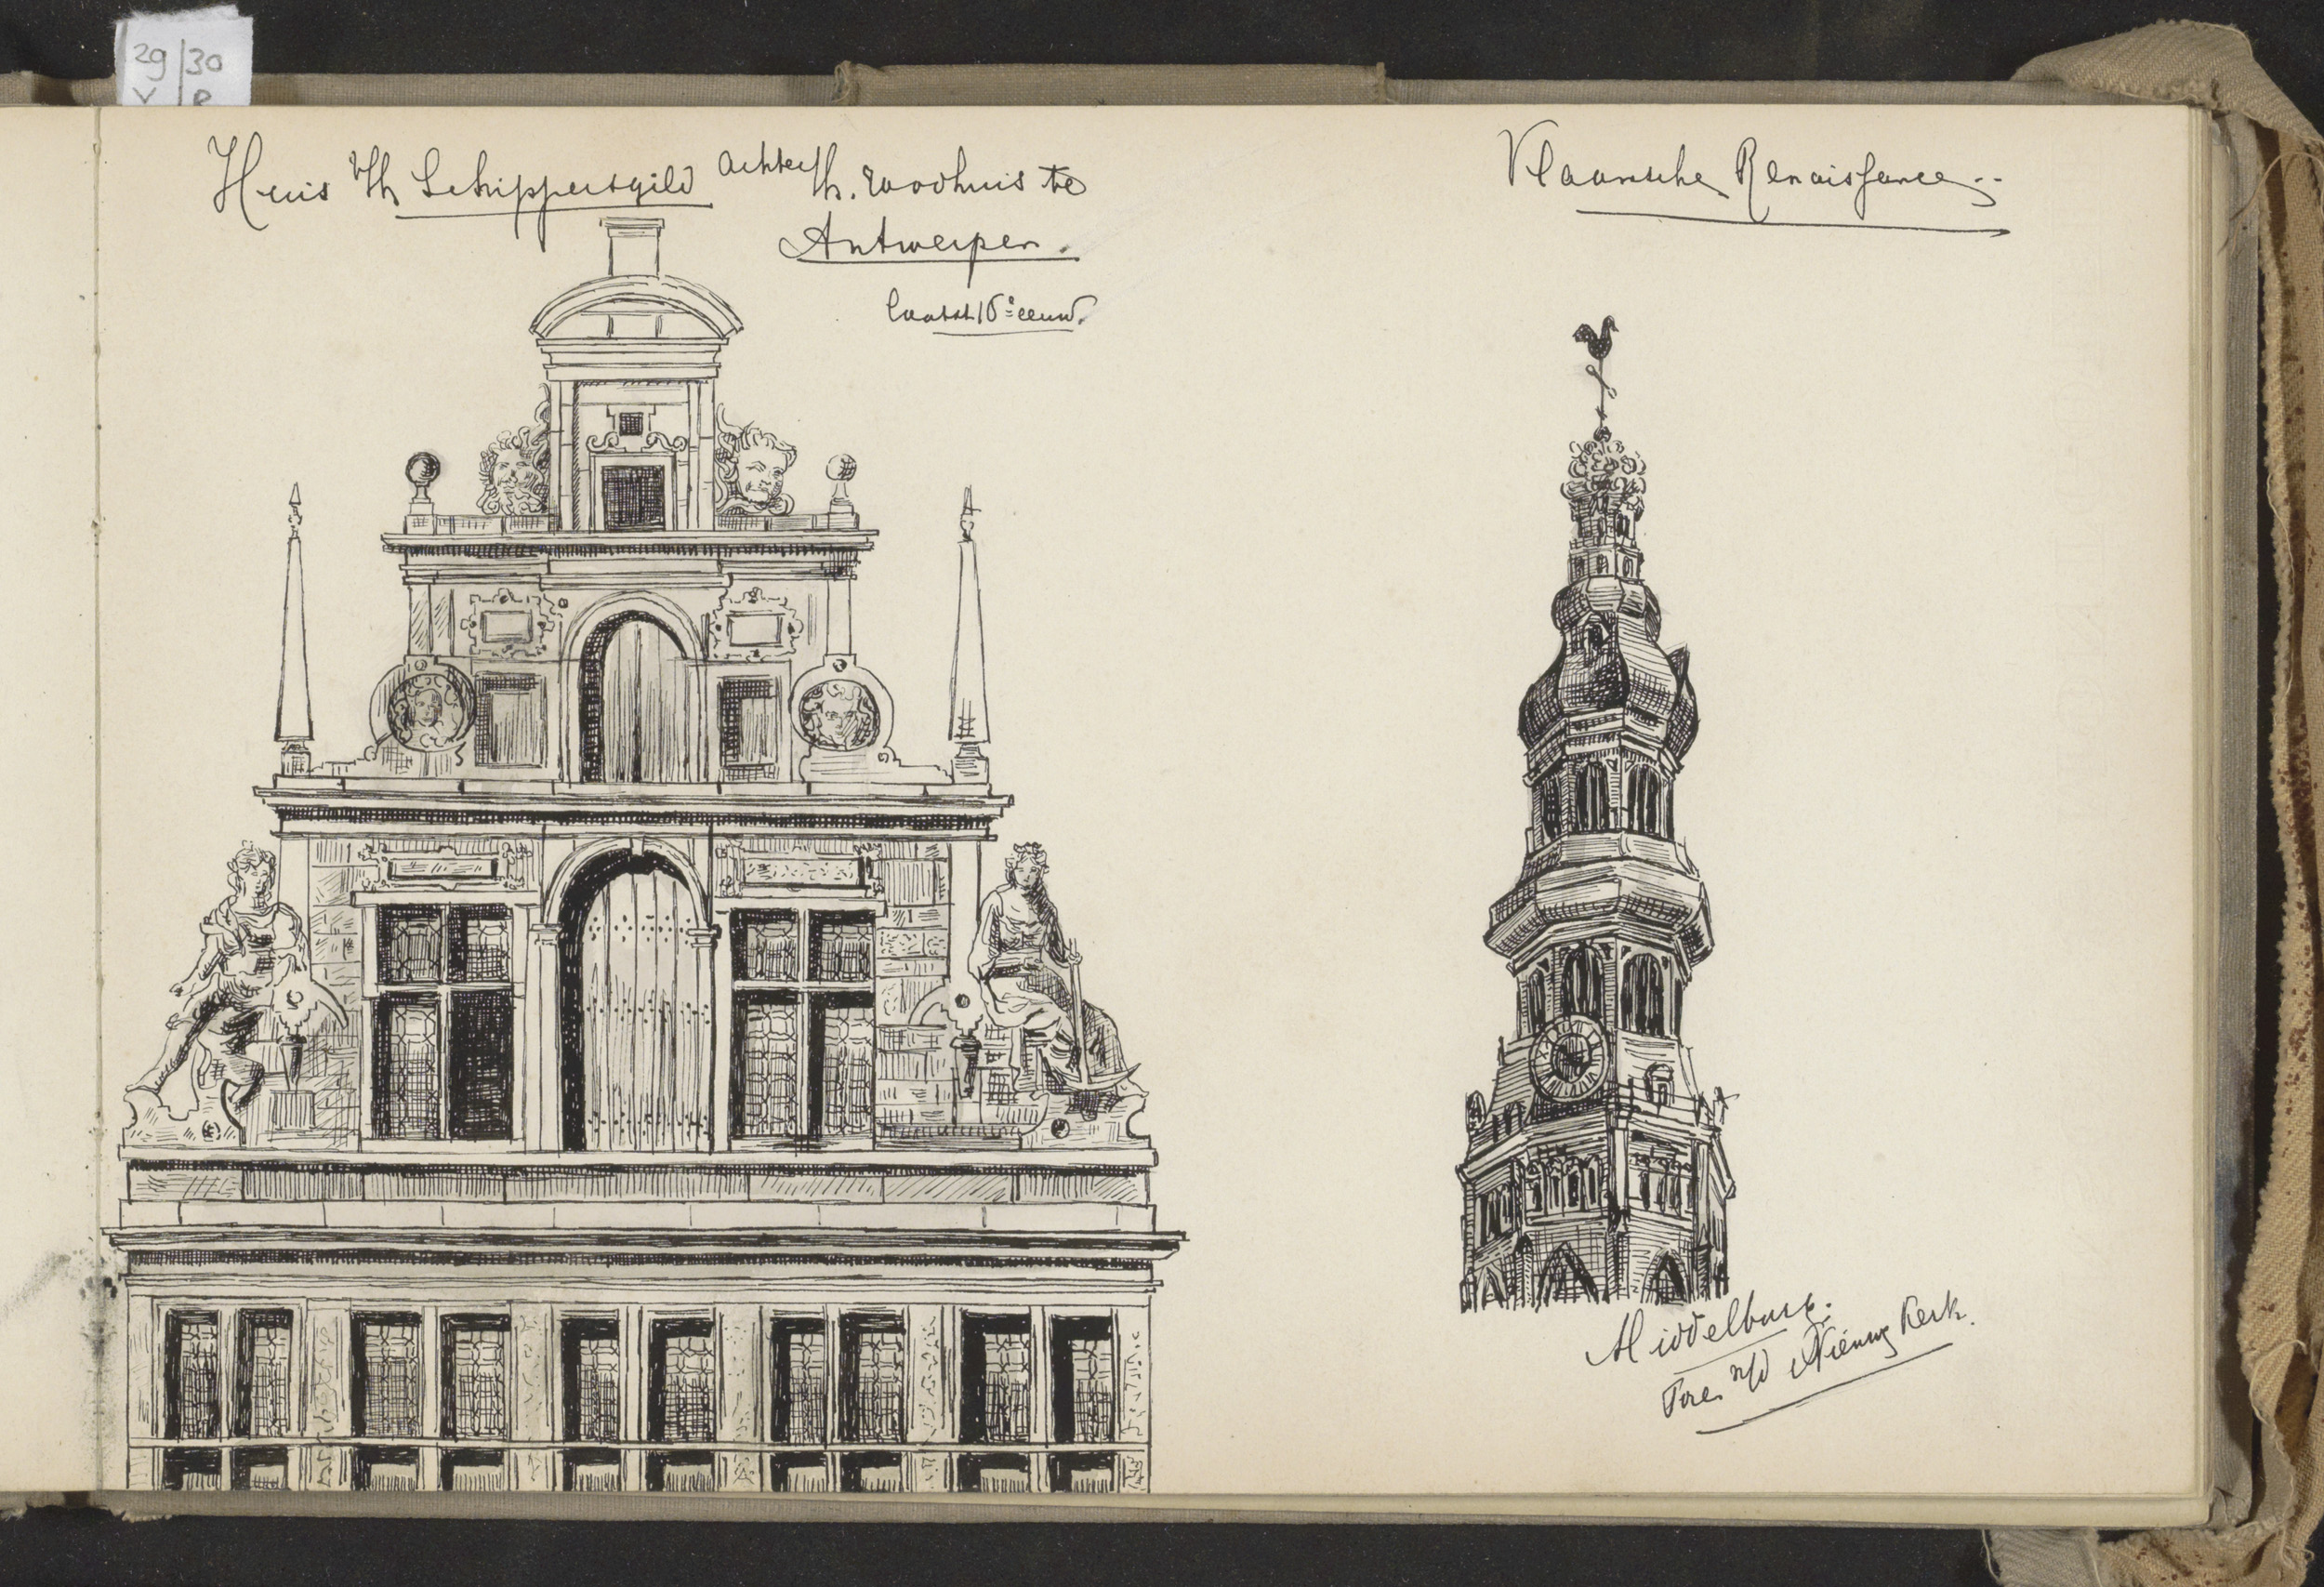 29 | 30
v | R
Huis v/h Schippersgild achter h. raadhuis te
Antwerpen.
laatst 16e eeuw.
Vlaamsche Renaissance..
Middelburg.
Toren v/d Nieuwe Kerk.